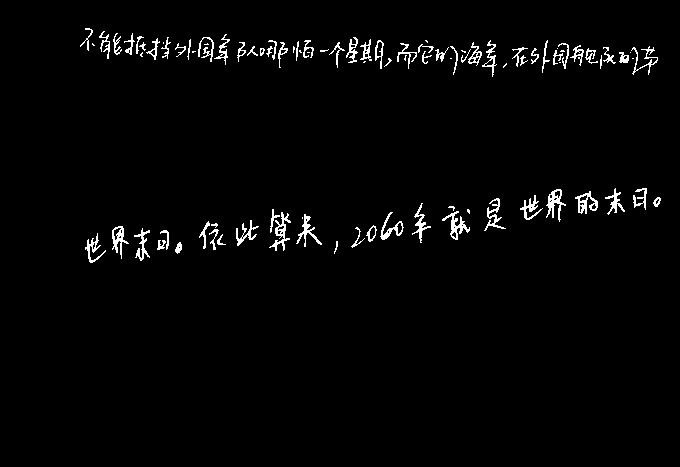 不能抵挡外国军队哪怕一个星期,而它的海军,在外国舰队的带
世界末日。依此算来,2060年就是世界的末日。